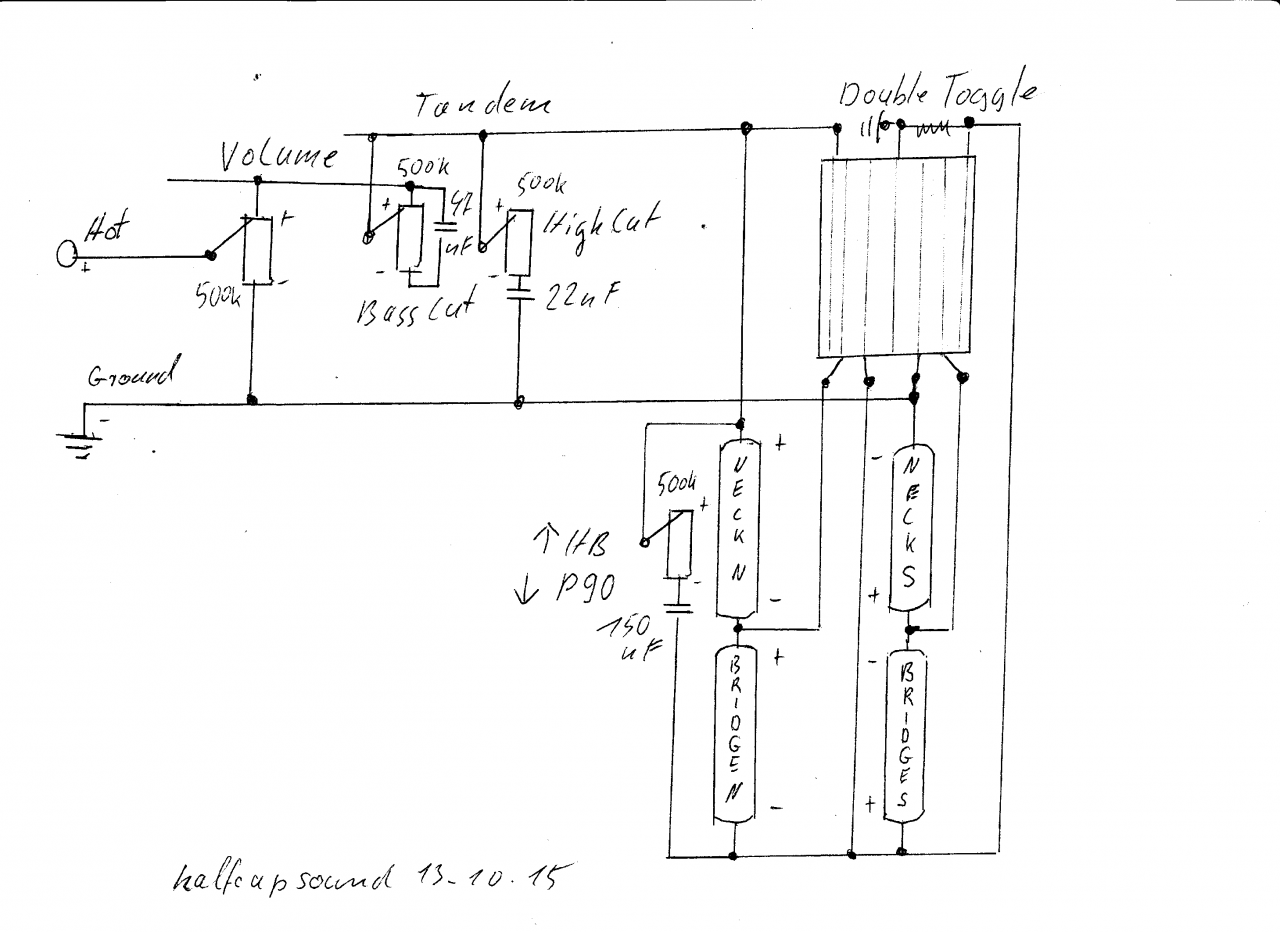 Tandem
Double Toggle
Volume
500k
500k
Hot
+
+
500k
-
+
-
47
nF
Bass Cut
+
-
High Cut
22nF
Ground
-
500k
+
-
↑ HB
↓ P90
150
nF
+
NECK N
-
+
BRIDGE N
-
-
NECK S
+
-
BRIDGE S
+
halfcapsound 13-10.15